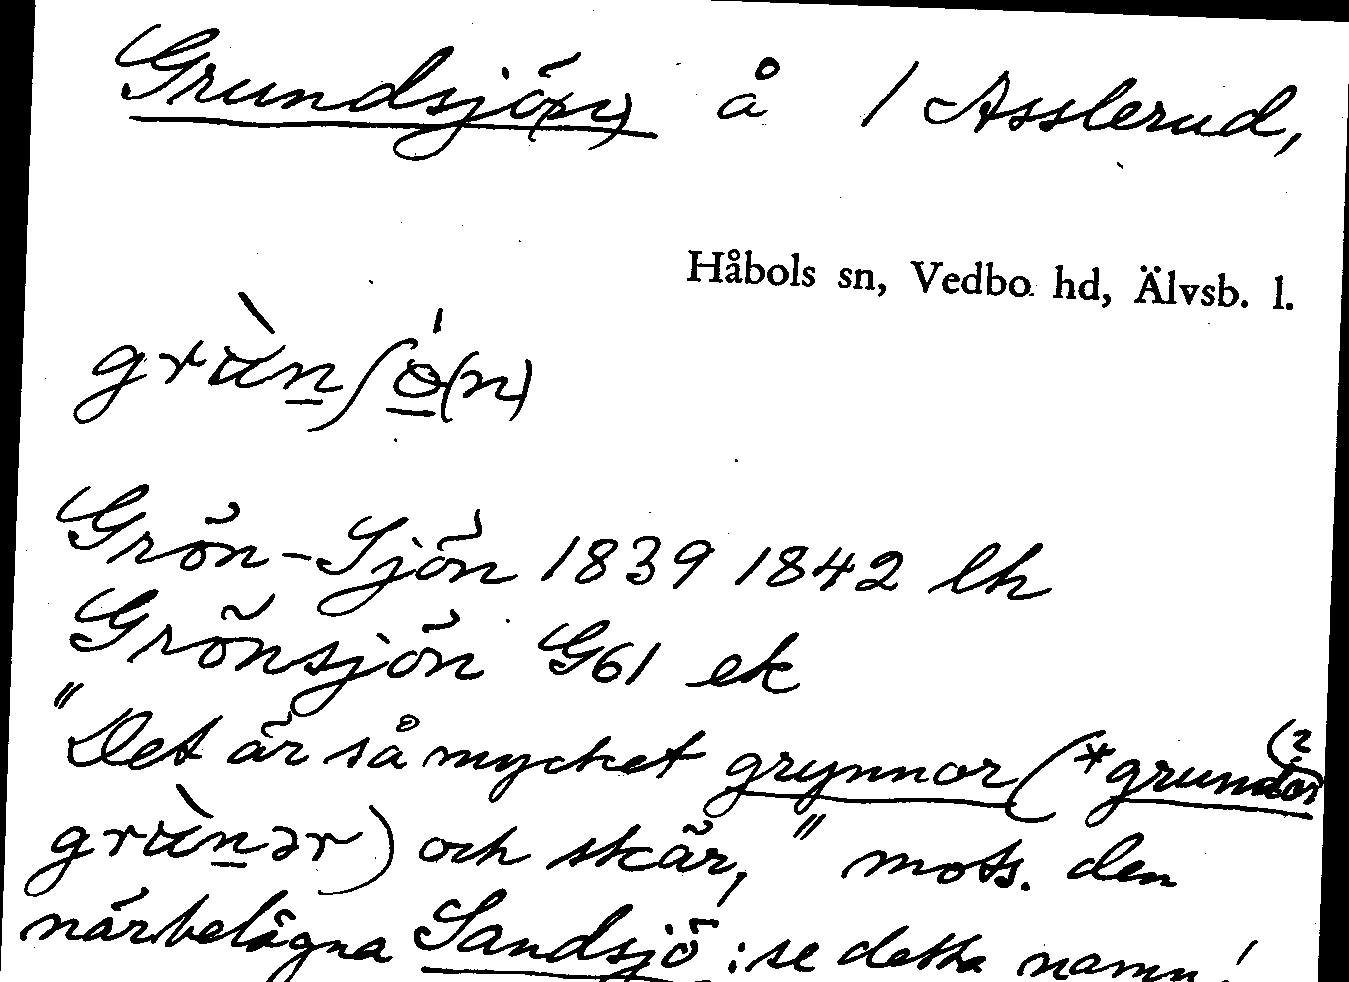 Grundsjö(n) å / Asslerud,
Håbols sn, Vedbo hd, Älvsb. l.
grùn̲ʃö̲́(n)
Grön-Sjön 1839 1842 lh
Grönsjön G61 ek
"Det är så mycket grynnor (*grundor (?
grùn̲ər) och skär," mots. den
närbelägna Sandsjö: se detta namn!